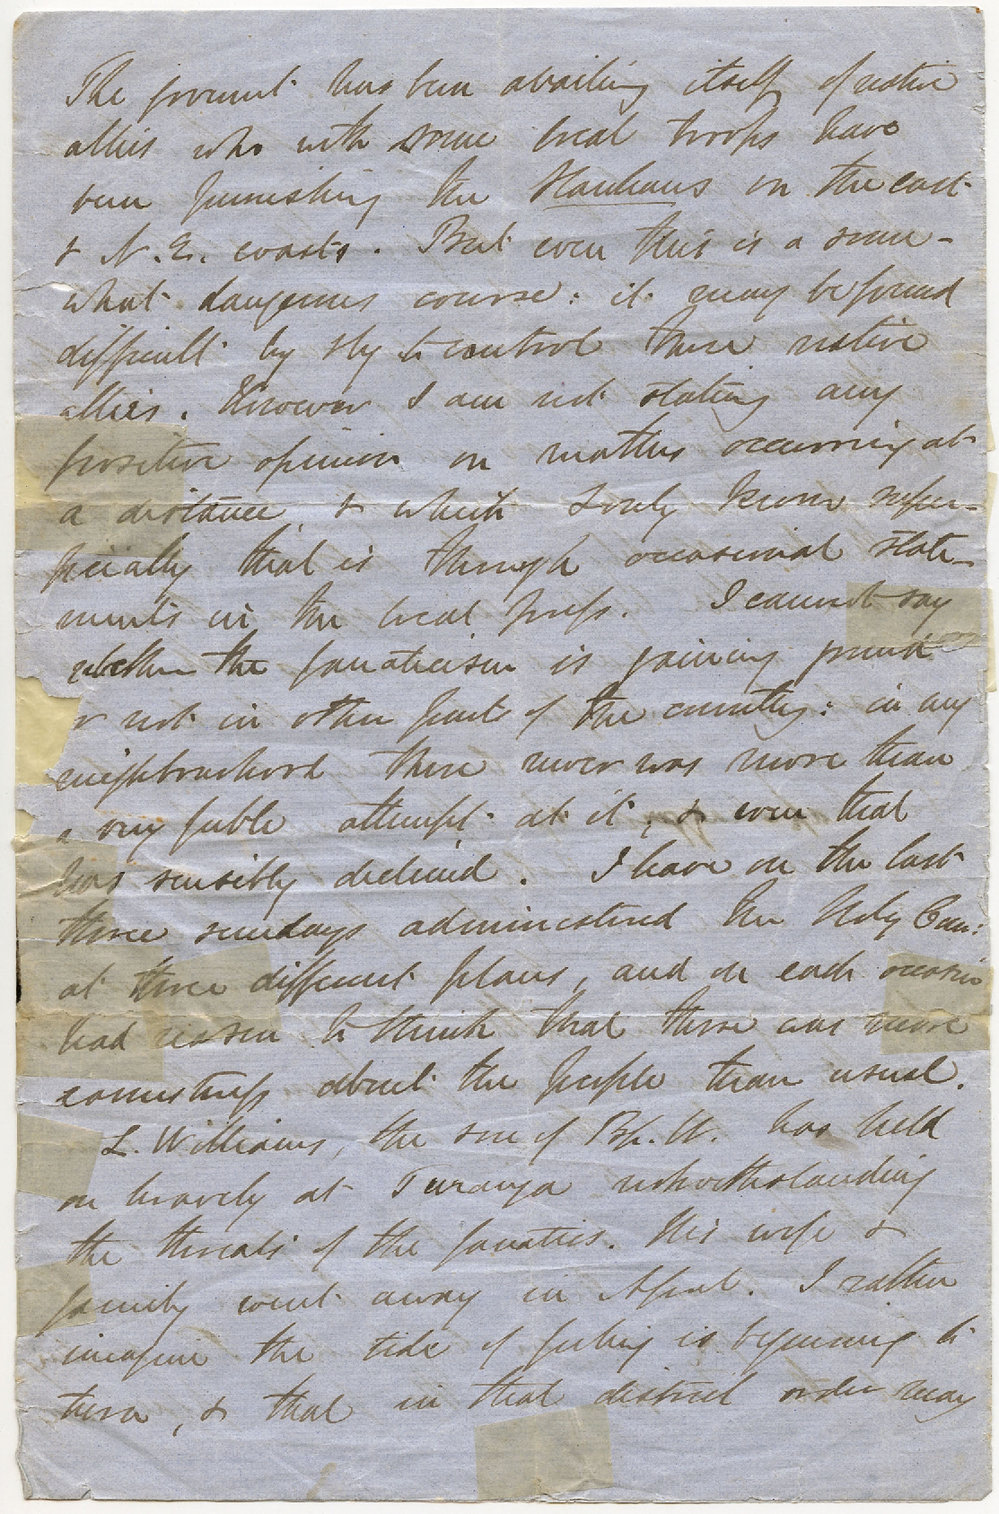 The governmt. has been availing itself of native
allies who with some local troops have
been punishing the Hauhaus on the east
& N.E. coasts. But even this is a some-
what dangerous course: it may be found
difficult by & by to control these native
allies. However I am not stating any
positive opinion on matters occurring at
a distance, & which I only know super-
ficially that is through occasional state-
ments in the local press. I cannot say
whether the fanaticism is gaining ground
or not in other parts of the country: in my
neighbourhood there never was more than
a very feeble attempt at it, & even that
has sensibly declined. I have on the last
three sundays administered the Holy Com:
at three different places, and on each occasion
had reason to think that there was more
earnestness about the people than usual.
L. Williams, the son of Bp. W. has held
on bravely at Turanga notwithstanding
the threats of the fanatics. His wife &
family went away in April. I rather
imagine the tide of feeling is beginning to
turn, & that in that district order may